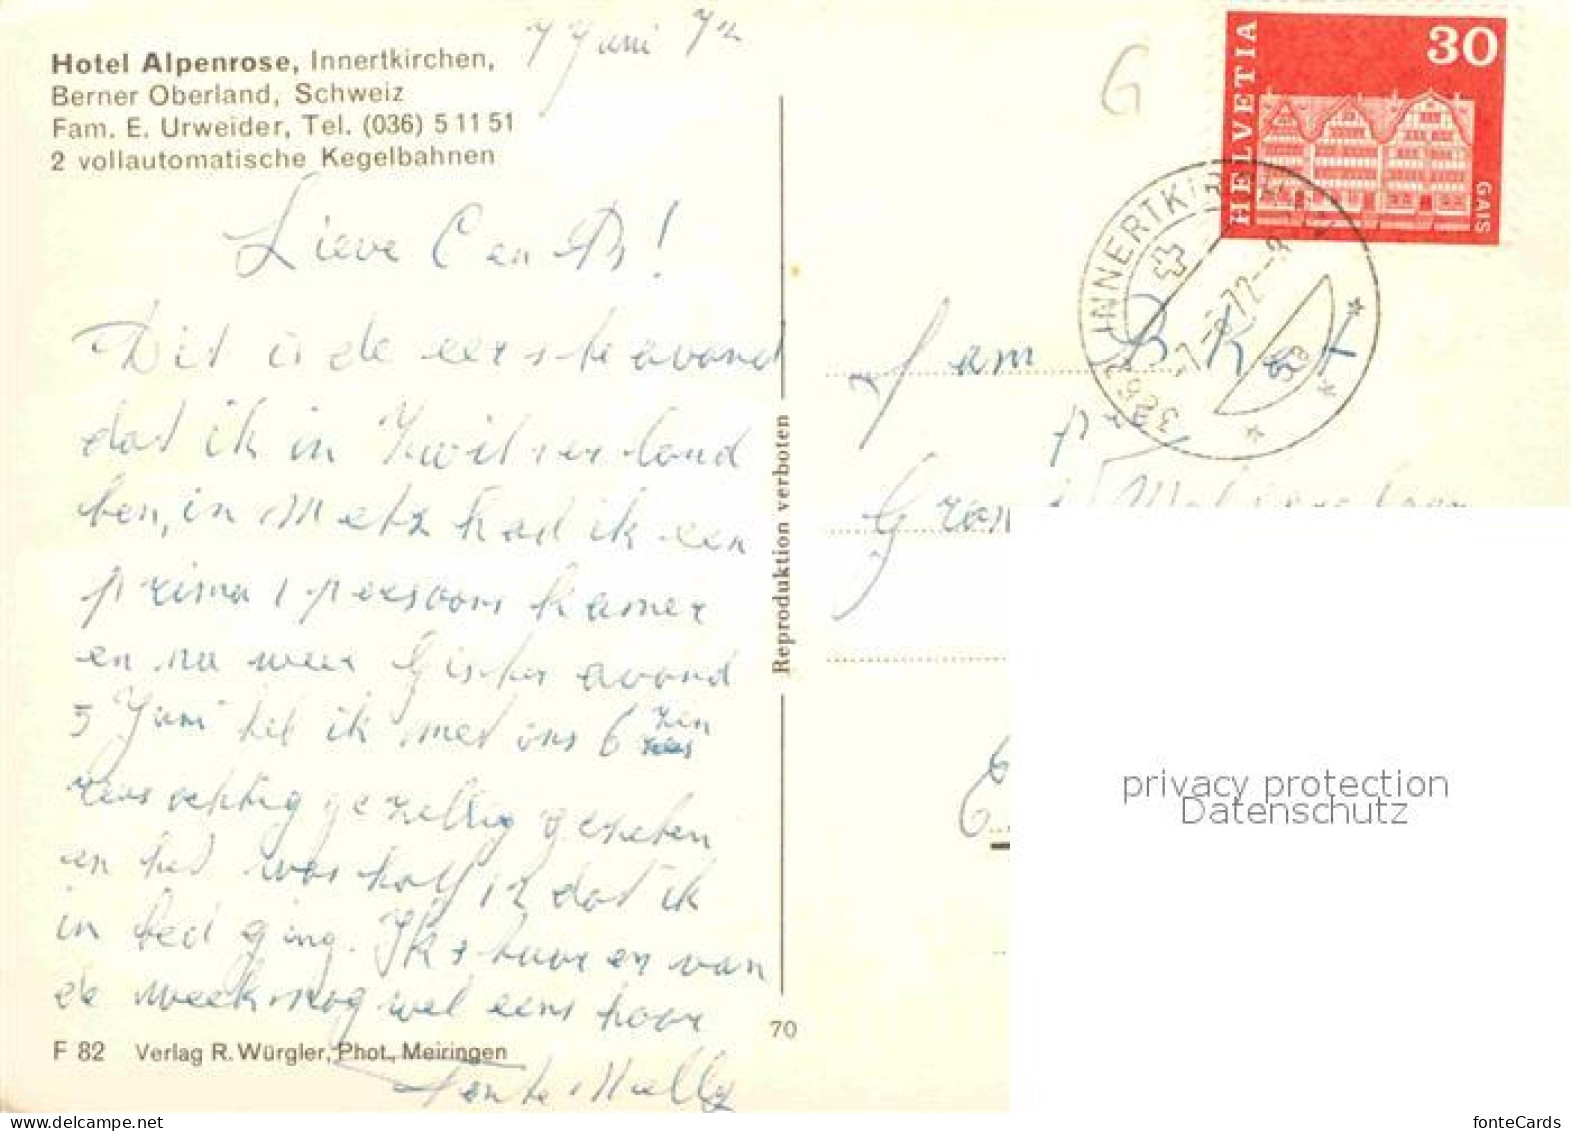 7 Juni 72
Hotel Alpenrose, Innertkirchen,
Berner Oberland, Schweiz
Fam. E. Urweider, Tel. (036) 5 11 51
2 vollautomatische Kegelbahnen
G
HELVETIA
30
GAIS
INNERTKIRCHEN
Lieve C en
Dit is de eerste avond
dat ik in Zwitserland
ben, in Metz had ik een
prima 1 persoons kamer
en nu weer Gister avond
5 Juni heb ik met ons 6 zen
gezellig gezeten
en het was half 12 dat ik
in bed ging. Ik stuur en van
de week nog wel eens hoor
Tante Nelly
Fam
Reproduktion verboten
70
F 82 Verlag R. Würgler, Phot., Meiringen
privacy protection
Datenschutz
www.delcampe.net
fonteCards